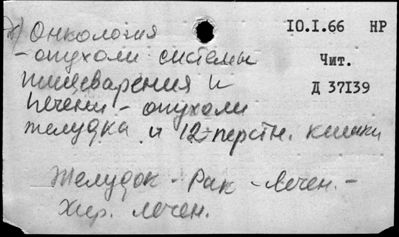 д) Онкология
10.I.66 НР
- опухоли системы
Чит.
пищеварения и
Д 37139
печени - опухоли
желудка и 12-перстн. кишки
Желудок - Рак - Лечен. -
Хир. лечен.